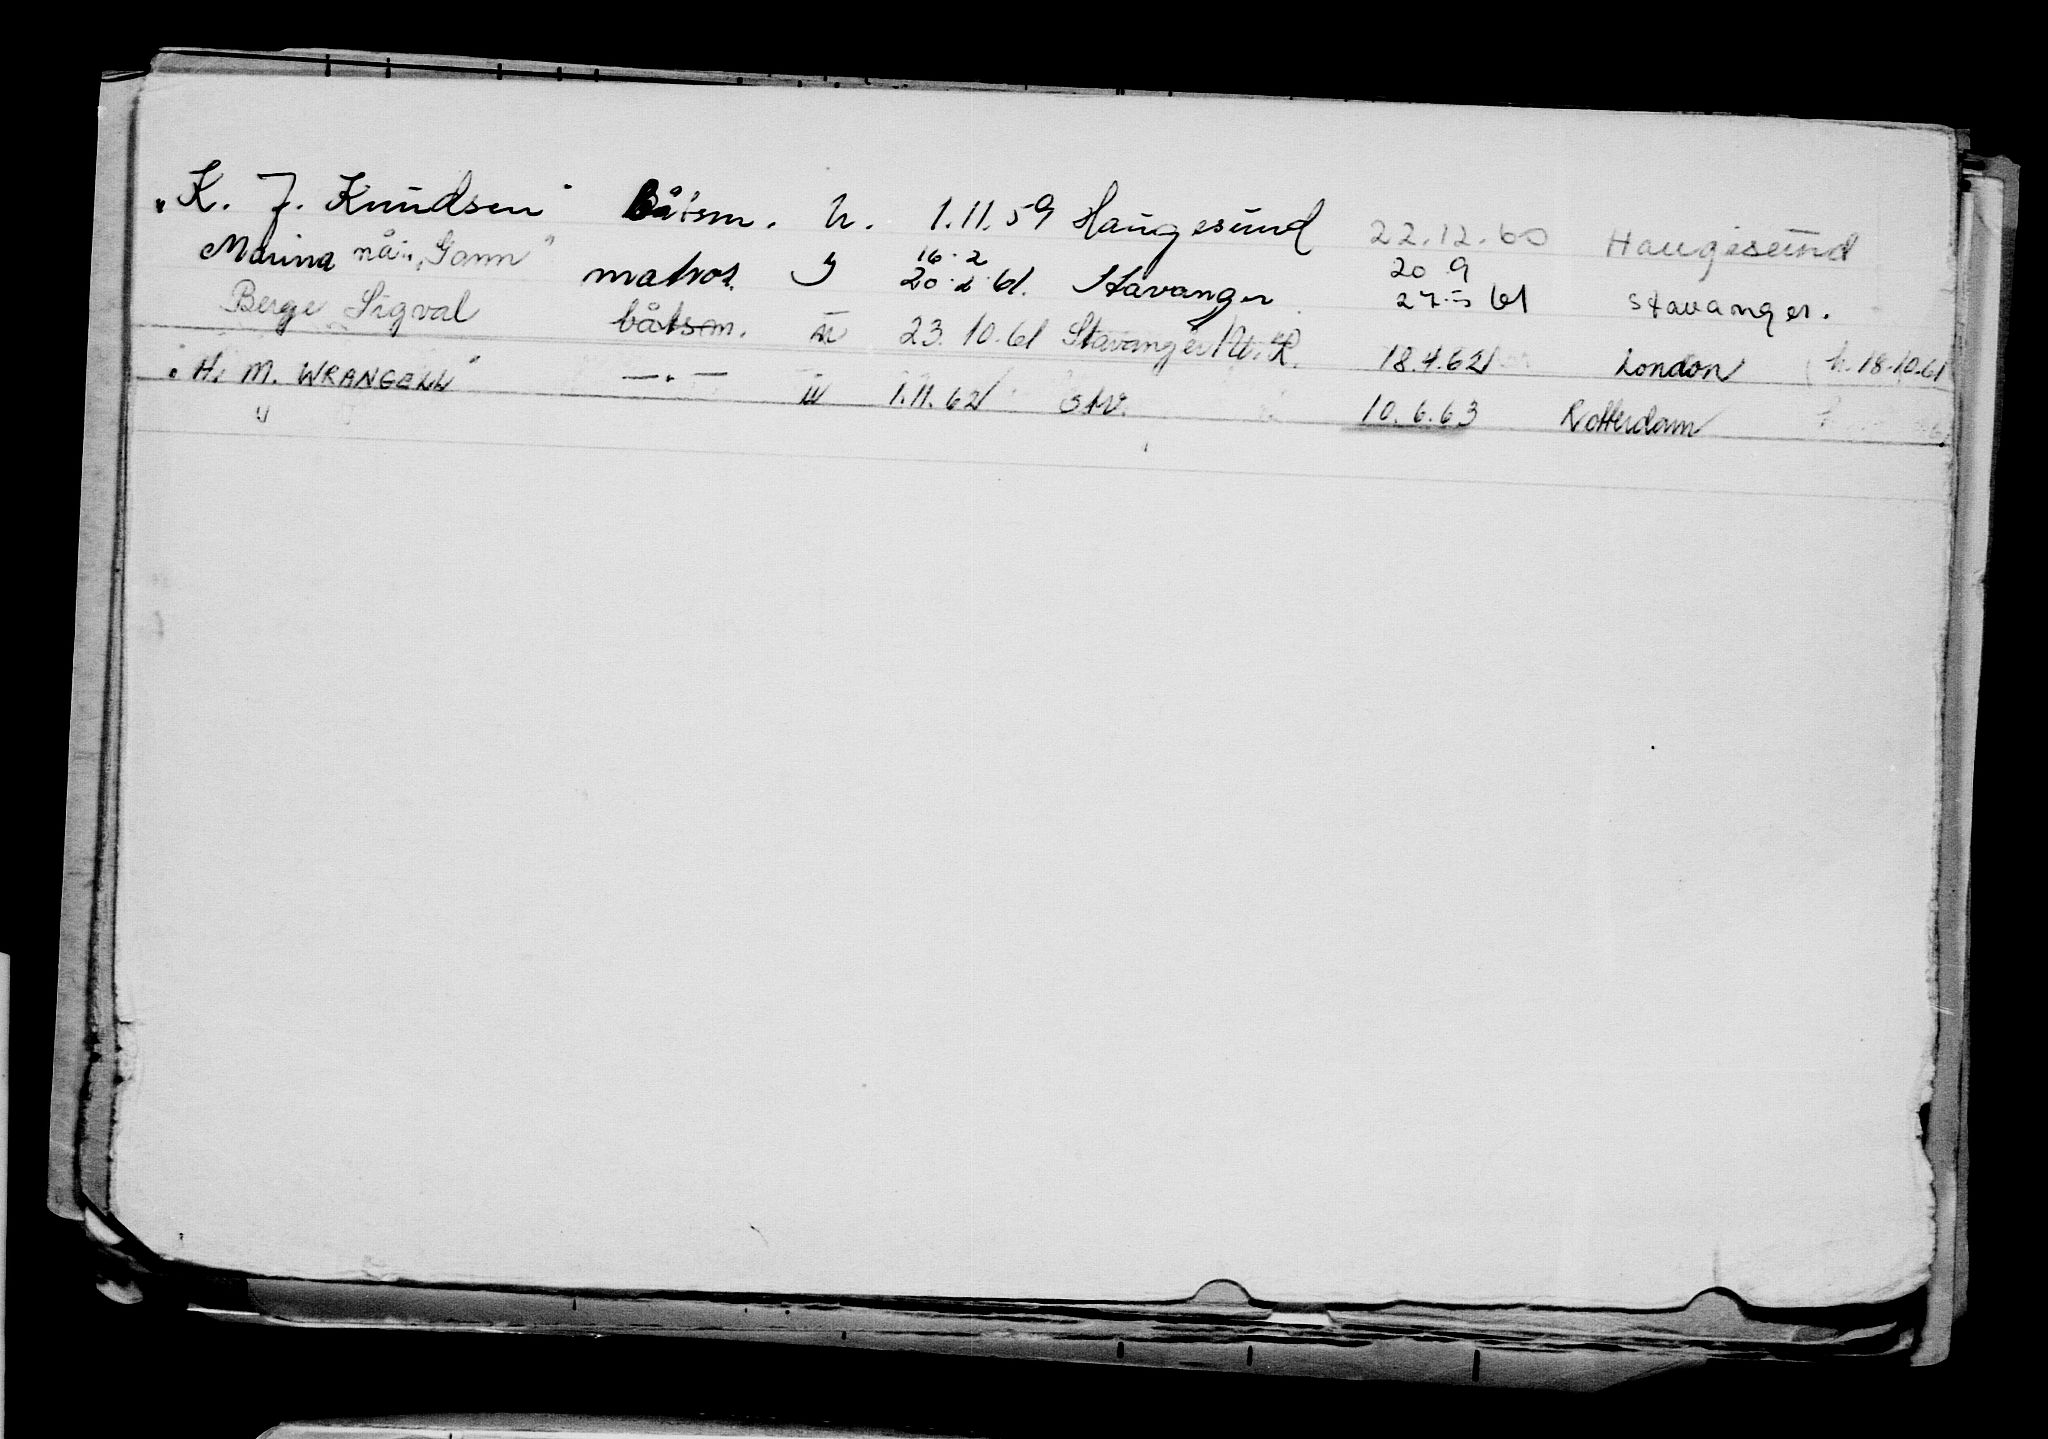 "K. J. Knudsen" Båtsm. U. 1.11.59 Haugesund 22.12.60 Haugesund
Marina nå: "Gann" matros. J 16.2 20.2.61. Stavanger 20 9 27.5 61 Stavanger.
Berge Sigval båtsm. 23.10.61 Stavanger 18.4.62 London h. 18.10.61
"H. M. WRANGELL" —"— IV 1.11.62 Stv. 10.6.63 Rotterdam